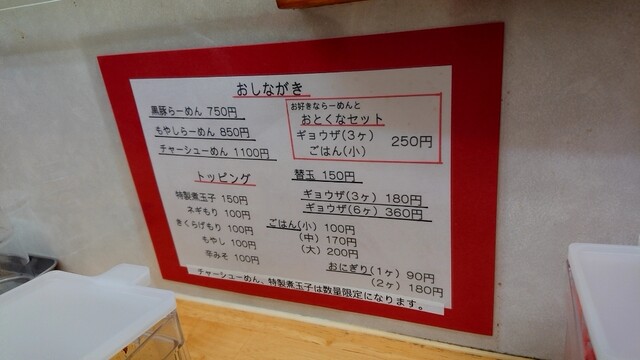 おしながき
黒豚らーめん 750円
もやしらーめん 850円
チャーシューめん 1100円
お好きならーめんと
おとくなセット
ギョウザ(3ヶ)
ごはん(小)
250円
トッピング
特製煮玉子 150円
ネギもり 100円
きくらげもり 100円
もやし 100円
辛みそ 100円
替玉 150円
ギョウザ(3ヶ) 180円
ギョウザ(6ヶ) 360円
ごはん(小) 100円
(中) 170円
(大) 200円
おにぎり(1ヶ) 90円
(2ヶ) 180円
チャーシューめん、特製煮玉子は数量限定になります。